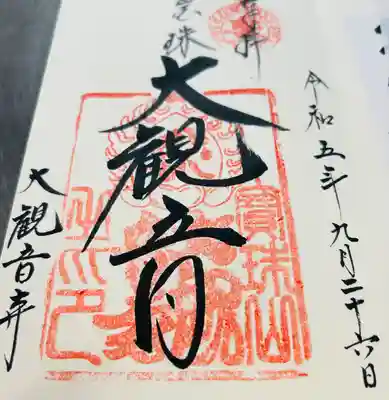 令和五年九月二十六日
奉拝
珠
大観音
寶珠山
大観音寺